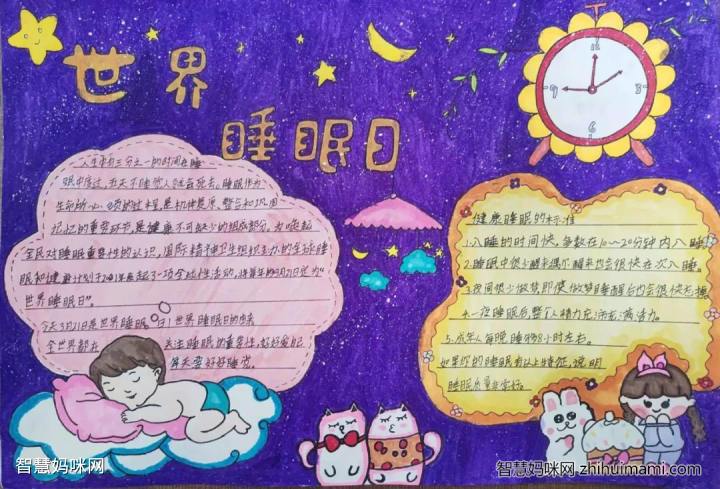 世界
睡眠日
12
3
6
9
人生中有三分之一的时间在睡
眠中度过,五天不睡觉人就会死去。睡眠作为
生命的必须的过程,是机体复原、整合和巩固
记忆的重要环节,是健康不可缺少的组成部分。为唤起
全民对睡眠重要性的认识,国际精神卫生组织主办的全球睡
眠和健康计划于2001年发起了一项全球性活动,将每年的3月21日定为"
世界睡眠日"
今天3月21日是世界睡眠日!世界睡眠日的
全世界都在关注睡眠的重要性,好好爱自己
每天要好好睡觉。
健康睡眠的标准
1.入睡的时间快,每数在10~20分钟内入睡
2.睡眠中很少醒来偶尔醒来也会很快在次入睡
3.夜间很少做梦即使做梦睡醒后也会很快忘掉
4.一夜睡眠后,整个人精力充沛充满活力。
5.成年人每晚睡够8小时左右。
如果你的睡眠有以上特征,说明
睡眠质量非常好。
智慧妈咪网
智慧妈咪网 zhihuimami.com